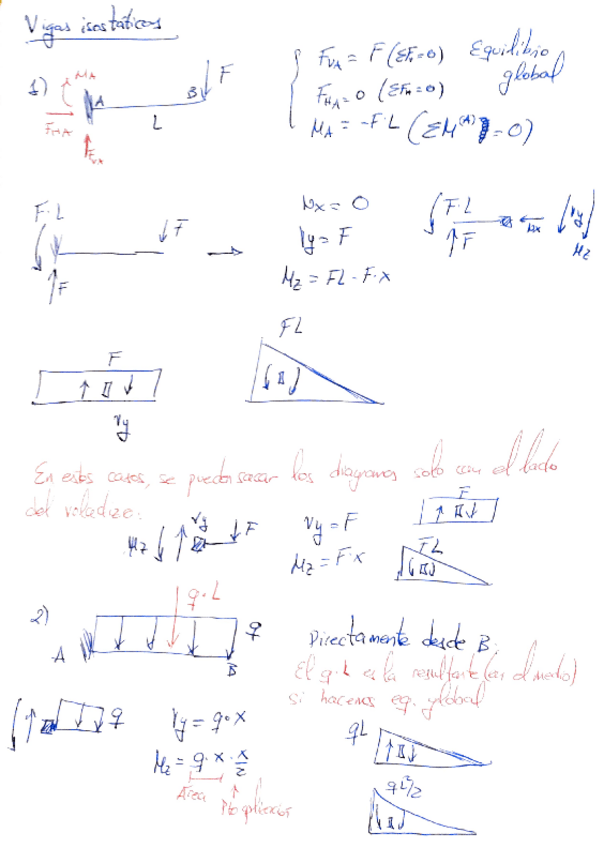 Vigas isostáticas
1)
MA
A
B
F
L
FHA
FVA
FVA = F (ΣFV=0)
FHA = 0 (ΣFH=0)
MA = -F·L (ΣM(A) = 0)
Equilibrio
global
F·L
F
F
Nx = 0
Vy = F
Mz = FL - F·x
F·L
F
Nx
Vy
Mz
F
Vy
FL
En estos casos, se pueden sacar los diagramas solo con el lado
del voladizo:
Mz
Vy
F
Vy = F
Mz = F·x
F
FL
2)
A
q·L
q
B
Directamente desde B.
El q·L es la resultante (en el medio)
si hacemos eq. global
q
Vy = q·x
Mz = q·x·x/2
Área
Pto aplicación
qL
qL²/2